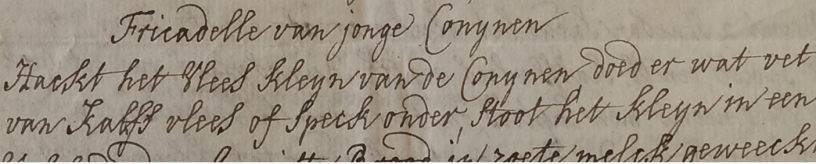 Fricadelle van jonge Conynen
Hackt het Vlees kleyn van de Conynen doed er wat vet
van Kalfs vlees of speck onder, stoot het kleyn in een
in zoete melck geweeckt